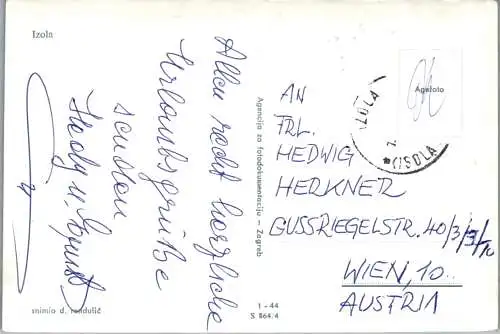 Izola
Allen recht herzliche
Urlaubsgrüße
senden
Hedy u. Ernst
snimio d. rendulić
Agencija za fotodokumentaciju — Zagreb
1 - 44
S 864/4
Agefoto
IZOLA
(ISOLA
AN
FRL.
HEDWIG
HERKNER
GUSSRIEGELSTR. 40/3/
WIEN, 10..
AUSTRIA